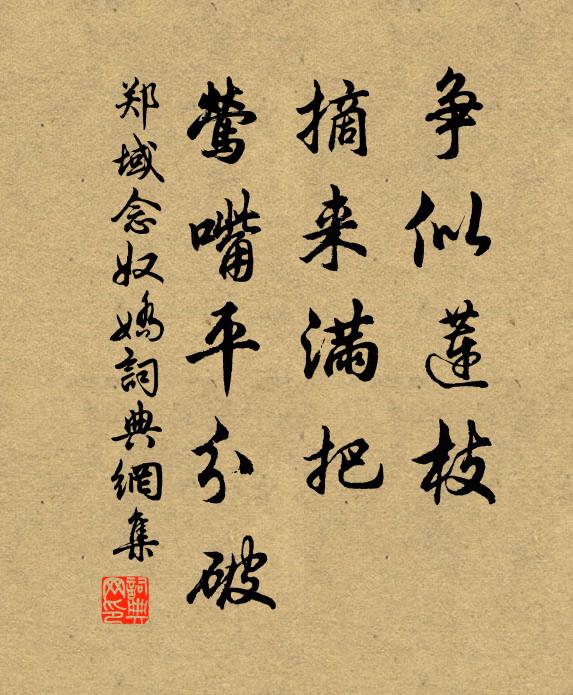 争似蓮枝
摘来满把
鶯嘴平分破
郑域念奴嬌詞典網集
詞典网印